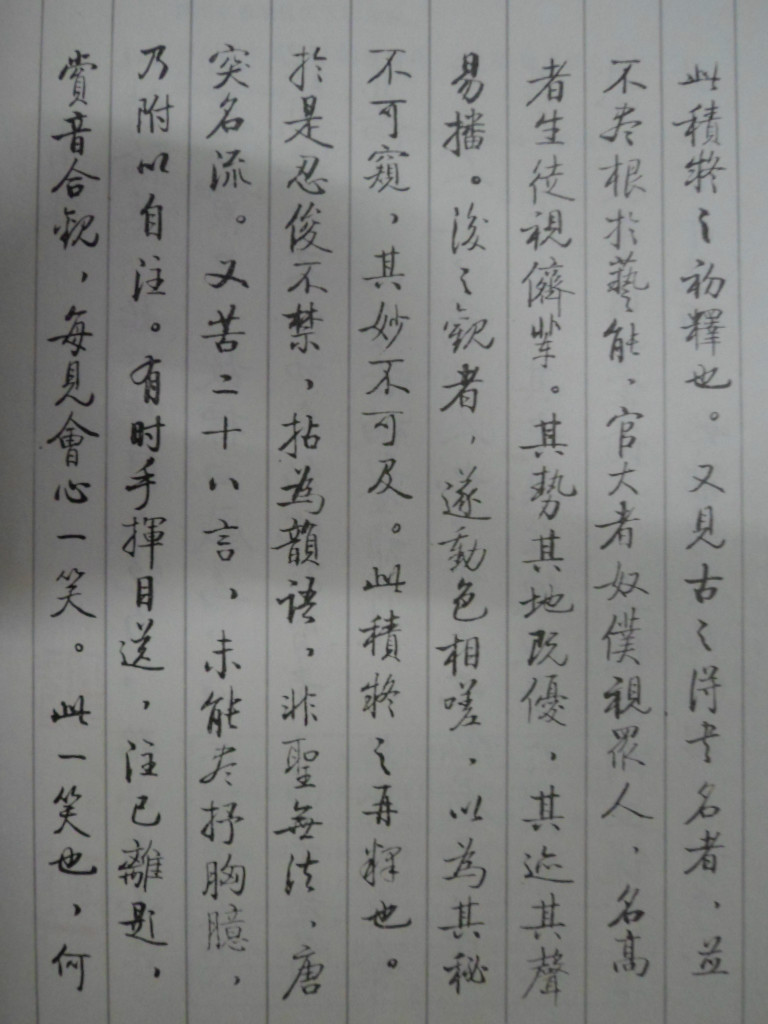 此積疑之初釋也。又見古之得书名者、並
不尽根於藝能、官大者奴僕視眾人、名高
者生徒視儕輩。其勢其地既優，其迹其聲
易播。後之觀者，遂動色相嗟、以為其秘
不可窺，其妙不可及。此積疑之再釋也。
於是忍俊不禁，拈為韻语，非聖無法、唐
突名流。又苦二十八言，未能尽抒胸臆，
乃附以自注。有时手揮目送，注已離题，
賞音合觀，每見會心一笑。此一笑也，何